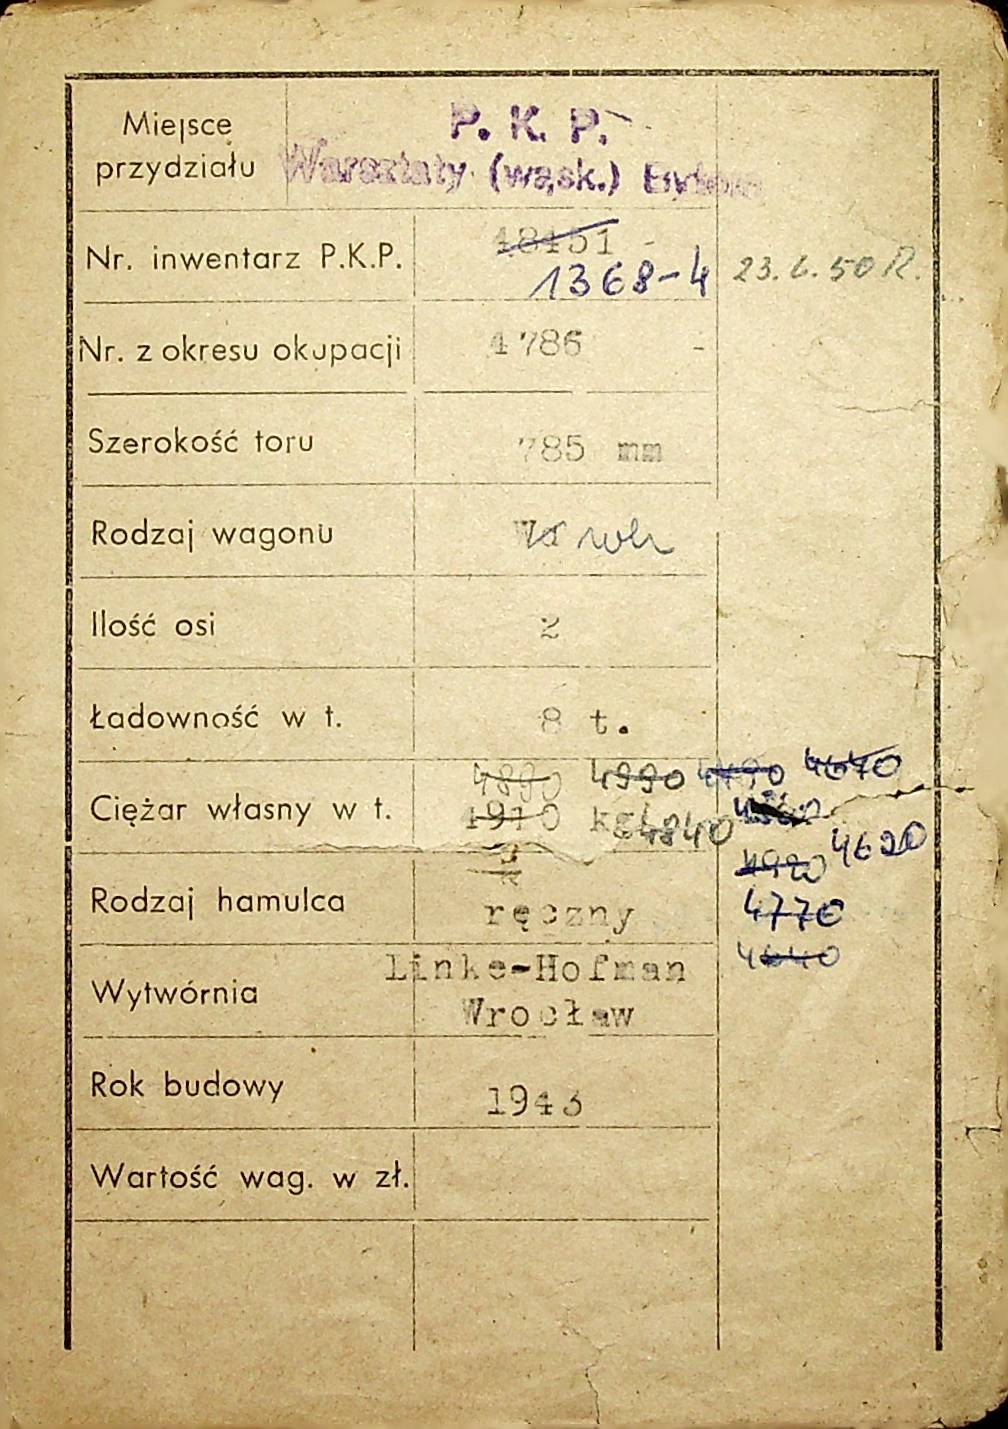 Miejsce
przydziału
P. K. P.
Warsztaty (wąsk.) Bytom
Nr. inwentarz P.K.P.
18451 -
1368-4
23. 6. 50 R.
Nr. z okresu okupacji
1786 -
Szerokość toru
785 mm
Rodzaj wagonu
Ilość osi
2
Ładowność w t.
8 t.
Ciężar własny w t.
4890 4990 4790 4670
4910 kg 4840
4620
4920
4770
4640
Rodzaj hamulca
ręczny
Wytwórnia
Linke-Hofman
Wrocław
Rok budowy
1943
Wartość wag. w zł.